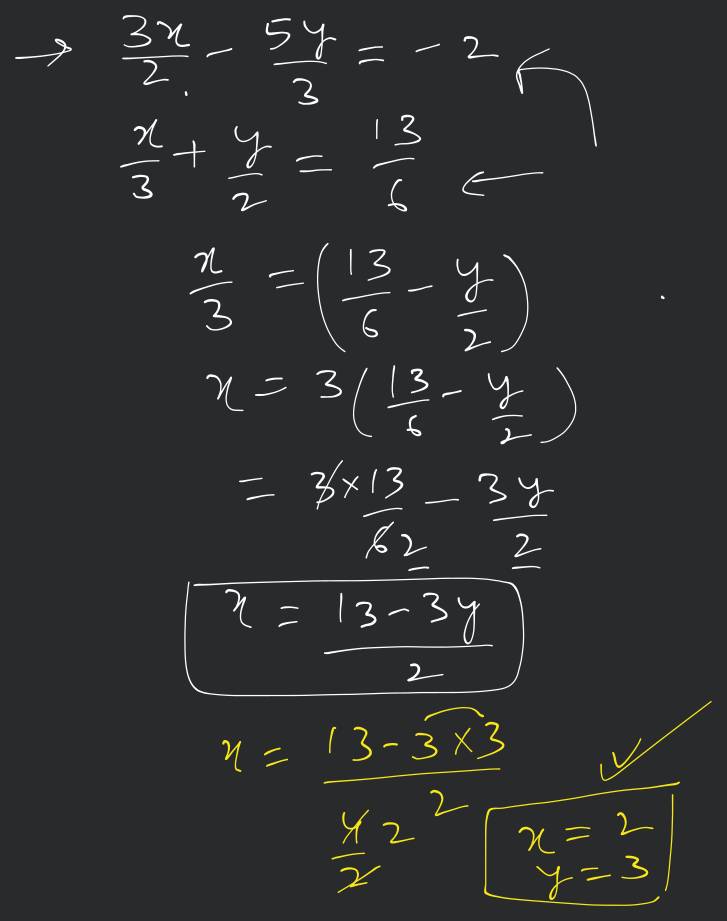 → 3x/2 - 5y/3 = - 2
x/3 + y/2 = 13/6 ←
x/3 = (13/6 - y/2)
x = 3(13/6 - y/2)
= 3×13/6 2 - 3y/2
x = 13 - 3y/2
x = 13 - 3×3/2
4/2 2
x = 2
y = 3